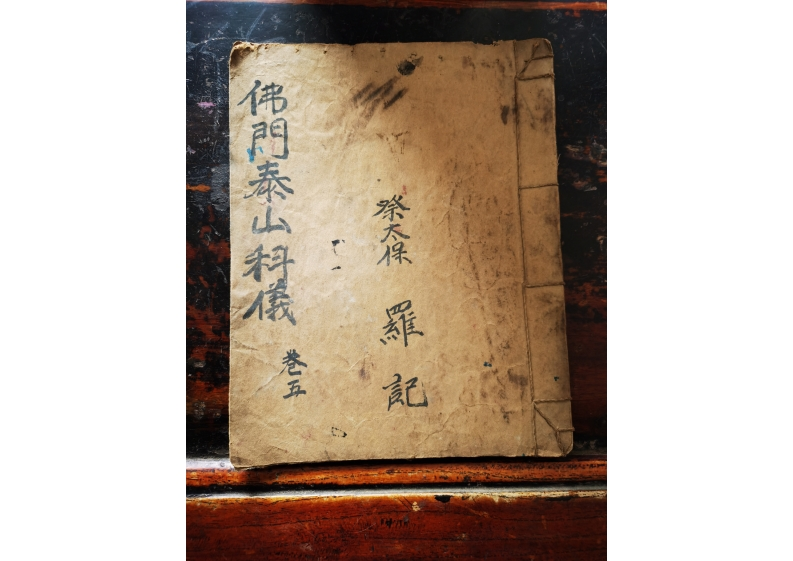 祭太保 羅記
佛門泰山科儀 卷五